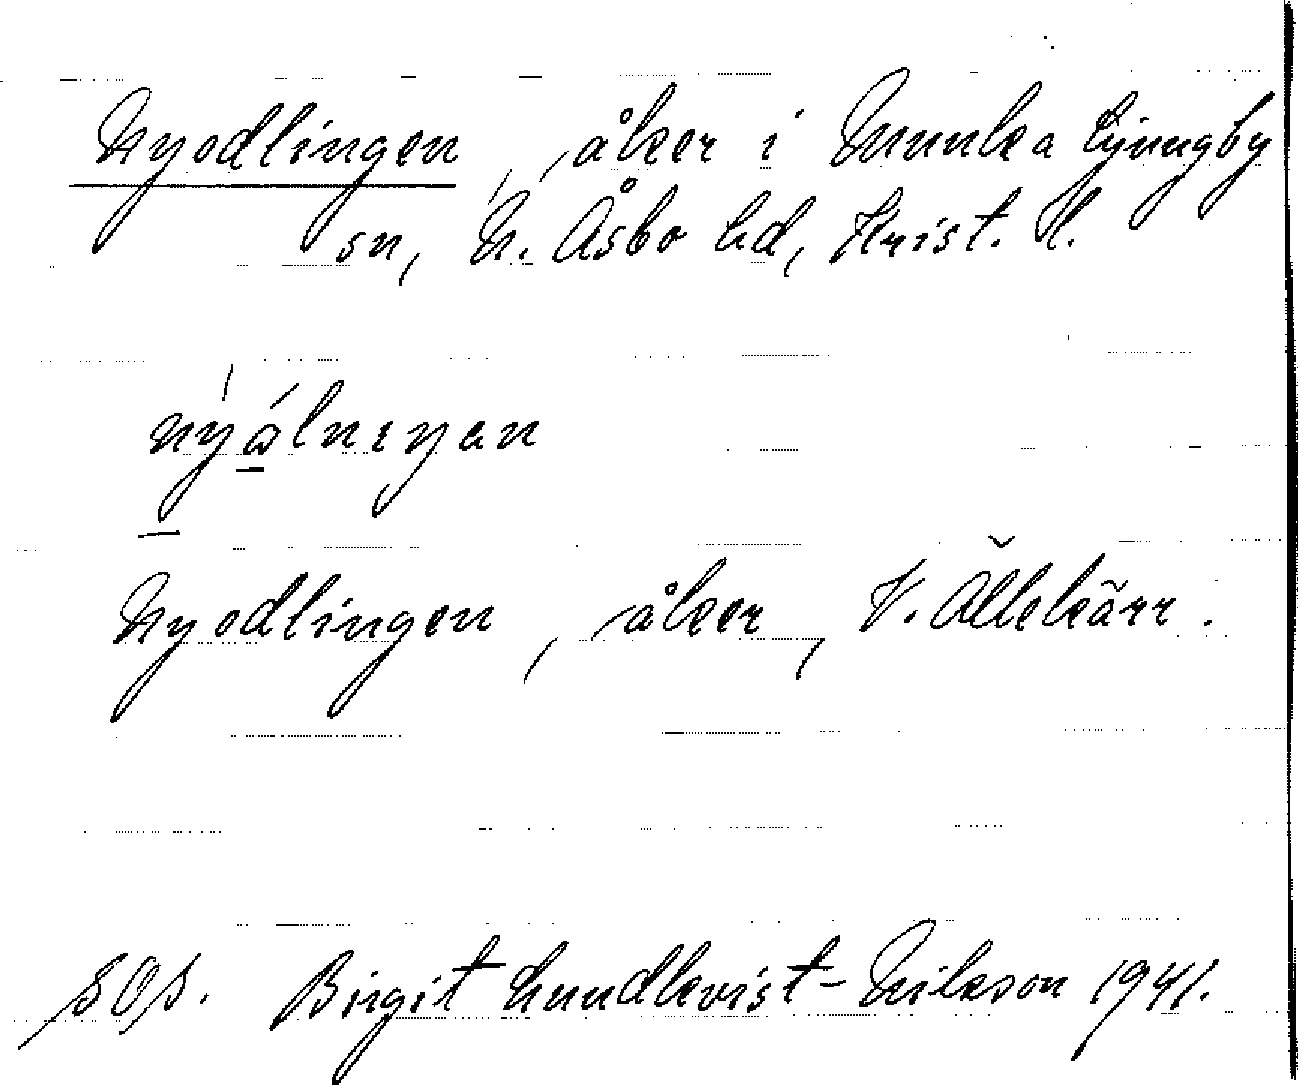 Nyodlingen, åker i Munka Ljungby
sn, N. Åsbo hd, Krist. l.
Nyodlingen, åker, V. Ållekärr.
SOS. Birgit Lundkvist-Nilsson 1941.